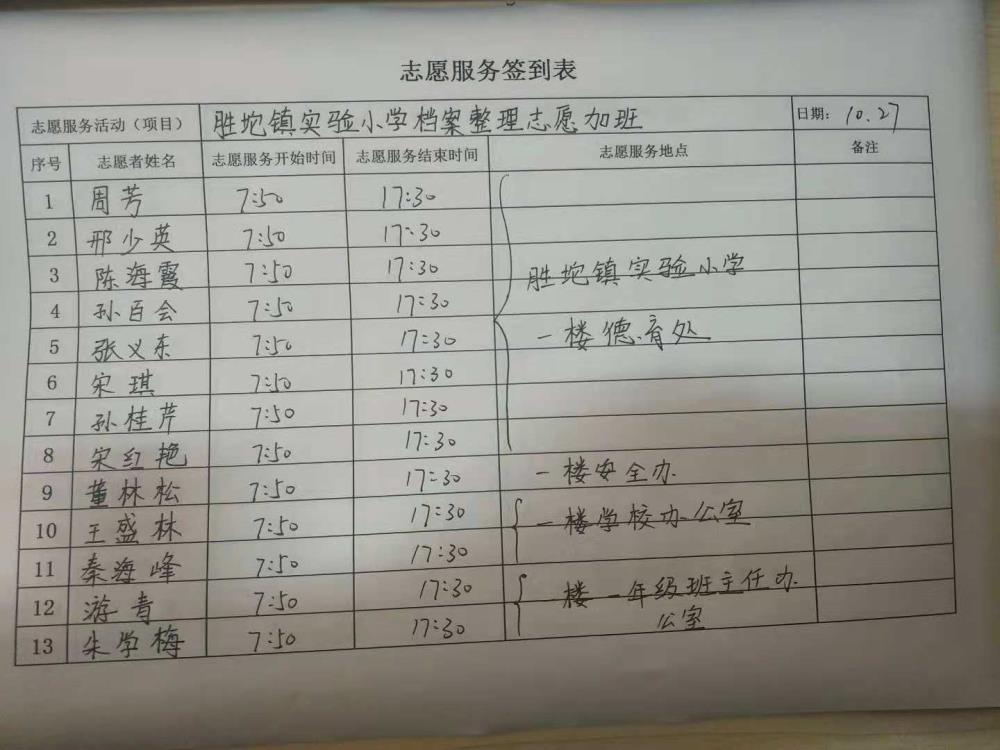 志愿服务签到表
志愿服务活动（项目） 胜坨镇实验小学档案整理志愿加班 日期： 10.27
序号 志愿者姓名 志愿服务开始时间 志愿服务结束时间 志愿服务地点 备注
1 周芳 7:50 17:30
2 邢少英 7:50 17:30
3 陈海霞 7:50 17:30 胜坨镇实验小学
4 孙百会 7:50 17:30
5 张义东 7:50 17:30 一楼德育处
6 宋琪 7:50 17:30
7 孙桂芹 7:50 17:30
8 宋红艳 7:50 17:30
9 董林松 7:50 17:30 一楼安全办
10 王盛林 7:50 17:30 一楼学校办公室
11 秦海峰 7:50 17:30
12 游青 7:50 17:30 一楼一年级班主任办
13 朱学梅 7:50 17:30 公室